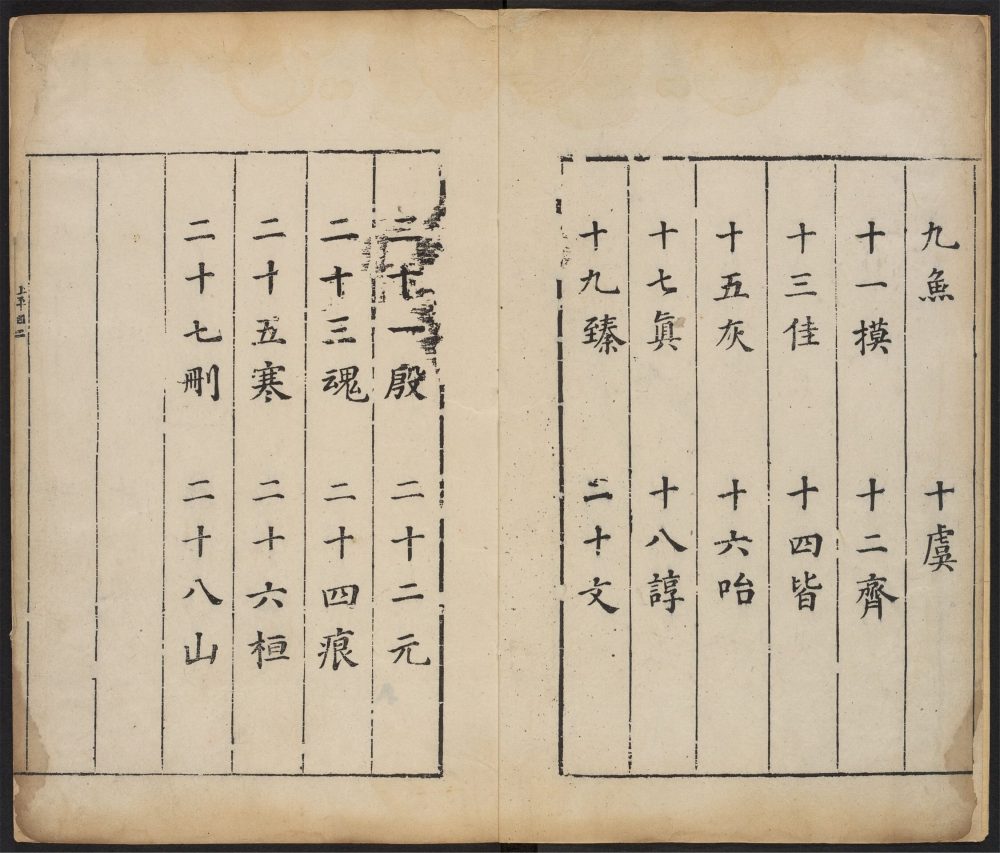 九魚 十虞
十一摸 十二齊
十三佳 十四皆
十五灰 十六咍
十七眞 十八諄
十九臻 二十文
二十一殷 二十二元
二十三魂 二十四痕
二十五寒 二十六桓
二十七刪 二十八山
上平目二